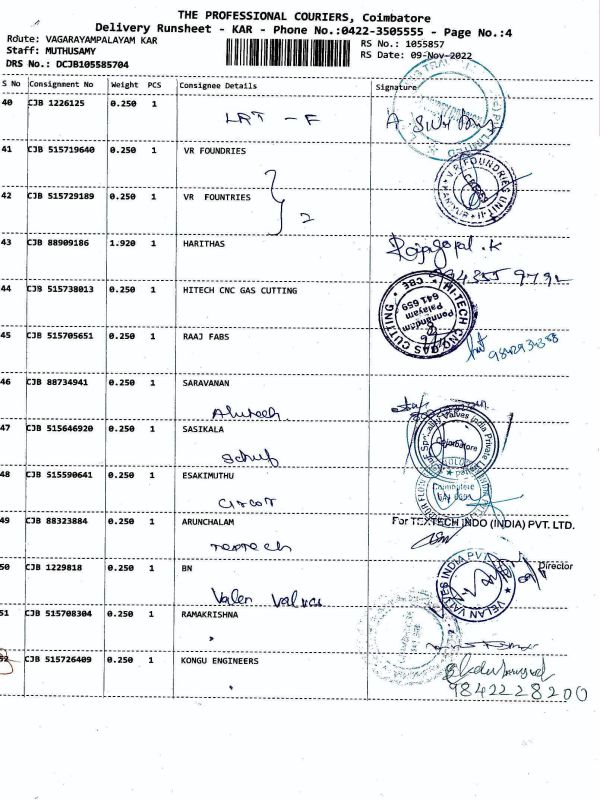 THE PROFESSIONAL COURIERS, Coimbatore
Delivery Runsheet - KAR - Phone No.:0422-3505555 - Page No.:4
Route: VAGARAYAMPALAYAM KAR
RS No.: 1055857
Staff: MUTHUSAMY
RS Date: 09-Nov-2022
DRS No.: DCJB105585704
S No Consignment No Weight PCS Consignee Details Signature
40 CJB 1226125 0.250 1
LRT - F
41 CJB 515719640 0.250 1 VR FOUNDRIES
V.R. FOUNDRIES UNIT-II
42 CJB 515729189 0.250 1 VR FOUNTRIES
2
43 CJB 88909186 1.920 1 HARITHAS
Rajagopal.K
44 CJB 515738013 0.250 1 HITECH CNC GAS CUTTING
HI-TECH CNC GAS CUTTING CBE
Ponnandam Palayam 641 659
45 CJB 515705651 0.250 1 RAAJ FABS
46 CJB 88734941 0.250 1 SARAVANAN
47 CJB 515646920 0.250 1 SASIKALA
Valves India Private
Coimbatore
48 CJB 515590641 0.250 1 ESAKIMUTHU
Coimbatore
49 CJB 88323884 0.250 1 ARUNCHALAM
For TEXTECH INDO (INDIA) PVT. LTD.
Textech
50 CJB 1229818 0.250 1 BN
Director
VELAN VALVES INDIA PVT
51 CJB 515708304 0.250 1 RAMAKRISHNA
52 CJB 515726409 0.250 1 KONGU ENGINEERS
9842228200